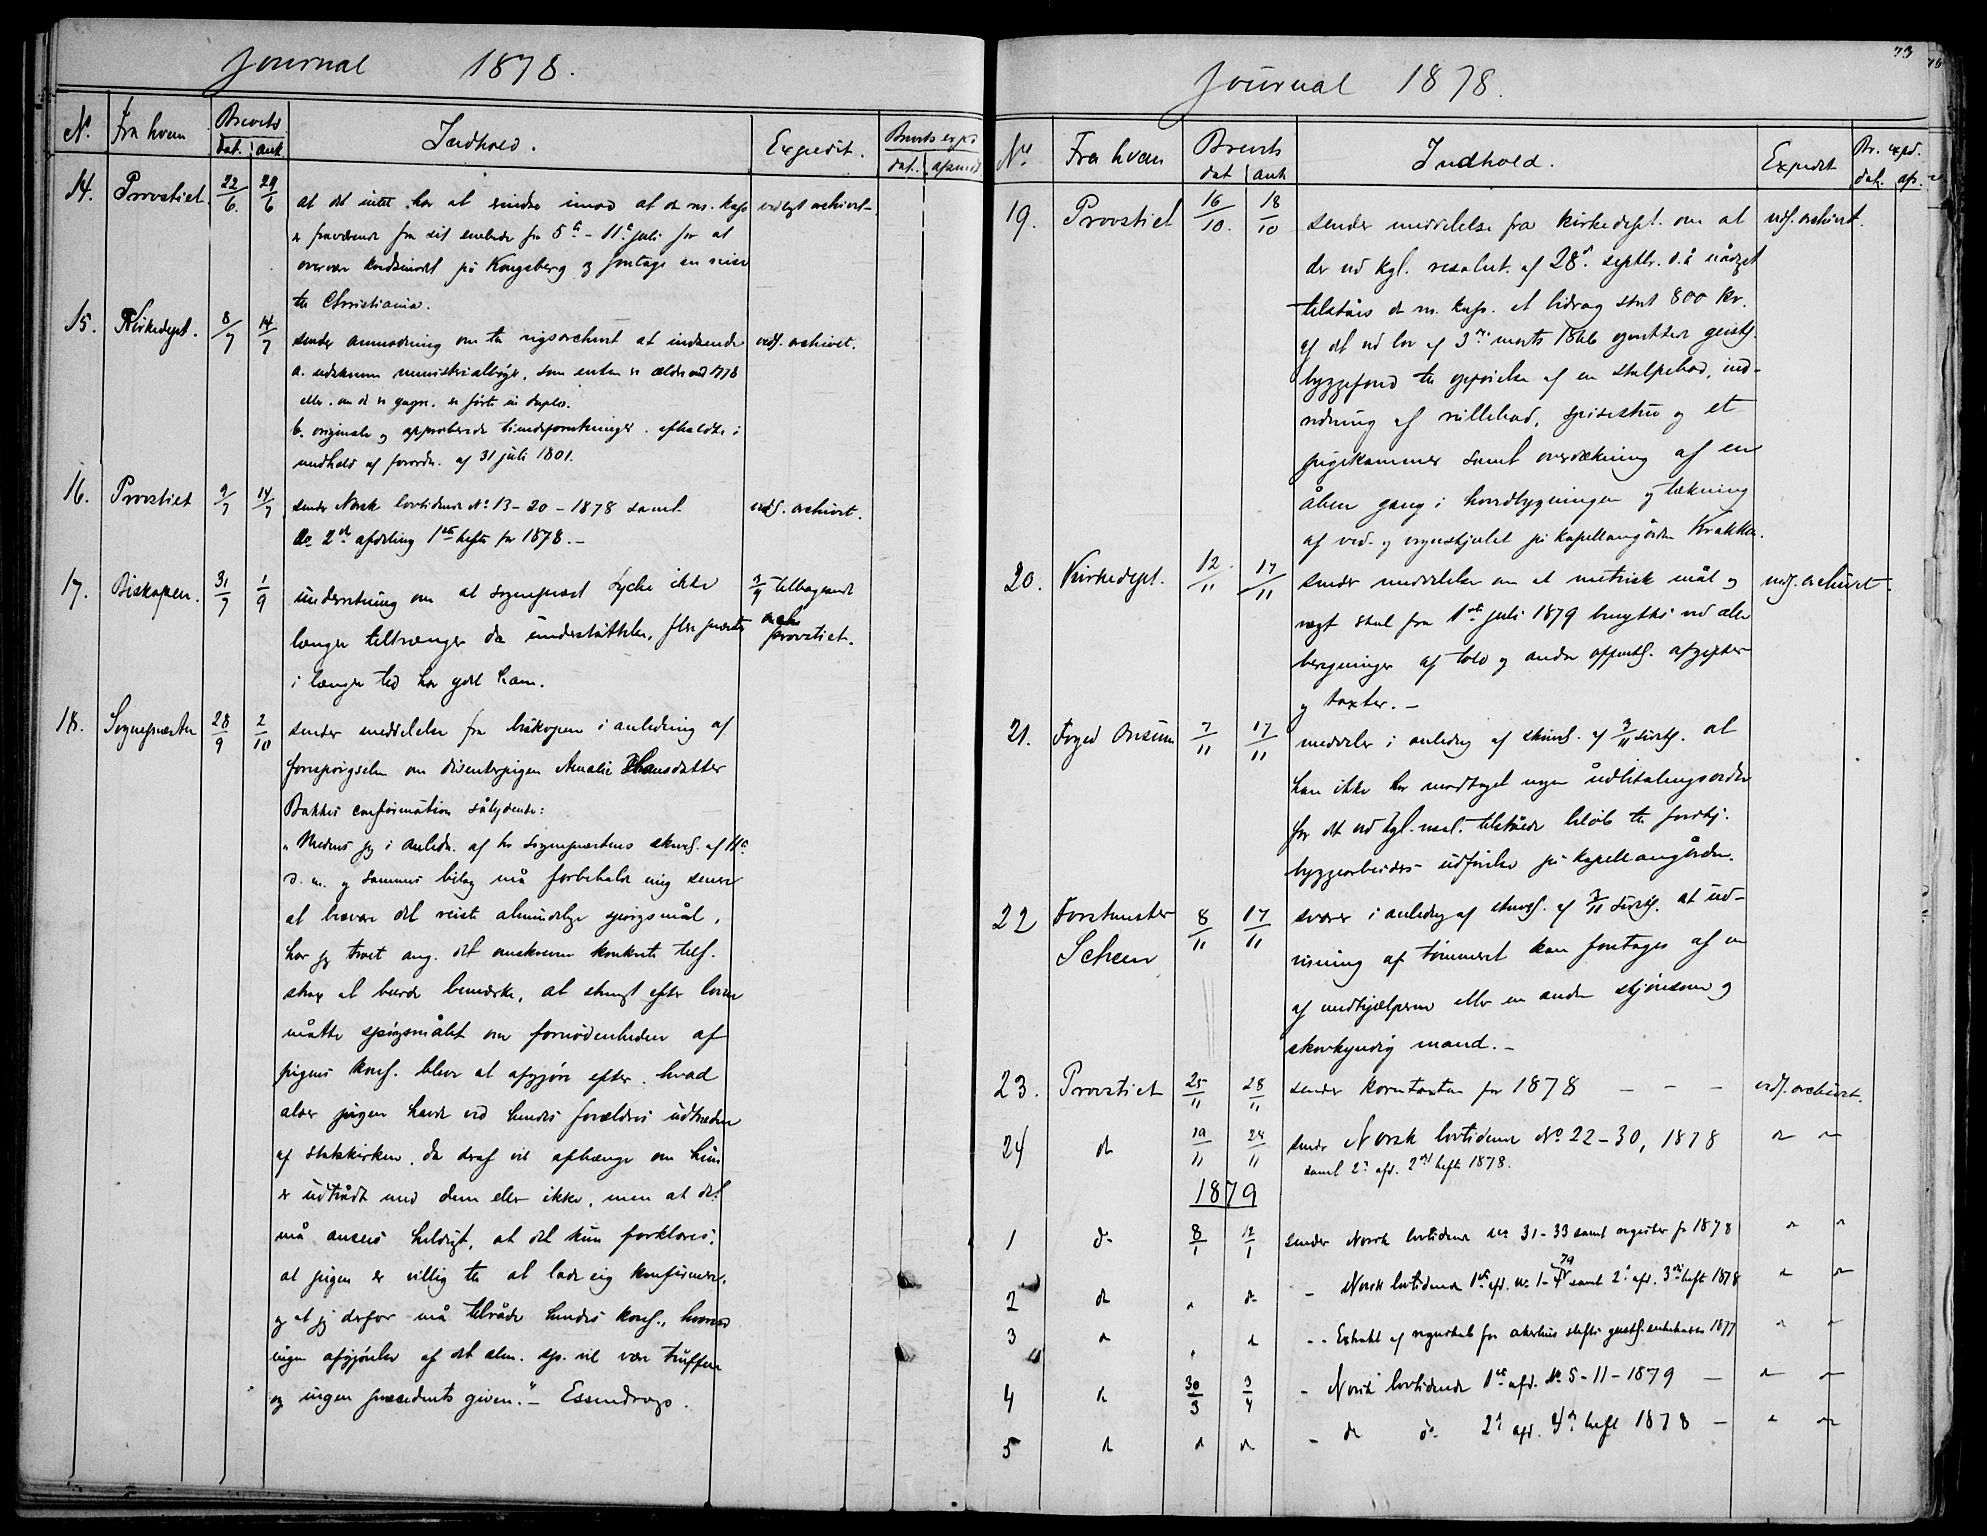 Journal 1878.
No. Fra hvem Brevets Indhold. Expedit. Brevets expd
dat. ank dat. afsendt
14. Provstiet 22/6 29/6 at det intet har at erindre imod at d. res. kap. vedlagt archivet
er fraværende fra sit embede fra 5te - 11te juli for at
overvære landsmødet på Kongsberg og foretage en reise
til Christiania.
15. Kirkedept. 8/7 14/7 sender anmodning om til rigsarchivet at indsende vedl. archivet.
a. udskrevne ministerialbøger, som enten er ældre end 1778
eller, om de er yngre, er førte in duplo.
b. originale og approberede tiendeforretninger, afholdte i
medhold af forordn. af 31 juli 1801.
16. Provstiet 9/7 14/7 sender Norsk lovtidende No. 13-20-1878 samt vedl. archivet.
do 2den afdeling 1ste hefte for 1878.-
17. Biskopen. 31/7 1/9 underretning om at sognepræst Lyche ikke 3/9 tilbagesendt
længer tiltrænger de understøttelser, flere præster provstiet.
i længere tid har ydet ham.
18. Sognepræsten 28/9 2/10 sender meddelelse fra biskopen i anledning af
forespørgselen om disenterpigen Amalie Hansdatter
Bakkes confirmation sålydende:
"Medens jeg i anledn. af hr. sognepræstens skrivel. af 11te
d. m. og sammes bilag må forbeholde mig senere
at besvare det reiste almindelige spørgsmål,
har jeg troet ang. det omskrevne konkrete tilf.
strax at burde bemærke, at strengt efter loven
måtte spørgsmålet om fornødenheden af
pigens konf. blive at afgjøre efter, hvad
alder pigen havde ved hendes forældres udtræden
af statskirken, da deraf vil afhænge om hun
er udtrådt med dem eller ikke, men at det
må ansees heldigt, at det kun forklares,
at pigen er villig til at lade sig konfirmere,
og at jeg derfor må tilråde hendes konf., hvorved
ingen afgjørelse af det alm. sp. vil være truffen
og ingen præcedents given." - Essendrop.
73
Journal 1878.
No. Fra hvem Brevets Indhold. Expedit Br. expd.
dat ank dat. afs.
19. Provstiet 16/10. 18/10 sender meddelelse fra kirkedept. om at vedl. archivet.
der ved kgl. resolut. af 28de septbr. d. å. nådigst
tilståes d. res. kap. et bidrag stort 800 kr.
af det ved lov af 3die marts 1866 oprettede geistl.
byggefond til opførelse af en stolpebod, ind-
redning af rullebod, spisestue og et
pigekammer samt overdækning af en
åben gang i hovedbygningen og tækning
af ved- og vognskjulet på kapellangården Krakken.
20. Kirkedept. 12/11 17/11 sender meddelelse om at metrisk mål og vedl. archivet.
vægt skal fra 1ste juli 1879 benyttes ved alle
beregninger af told og andre offentl. afgifter
og taxter. -
21. Foged Onsum 7/11 17/11 meddeler i anledng af skrivel. af 3/11 sidstl. at
han ikke har modtaget nogen udbetalingsordre
for det ved kgl. resol. tilståede beløb til forskj.
byggearbeiders udførelse på kapellangården.
22 Forstmester 8/11 17/11 svarer i anledng af skrivel. af 3/11 sidstl. at ud-
Scheen visning af tømmeret kan foretages af en
af medhjælperne eller en anden skjønsom og
skovkyndig mand. -
23. Provstiet 25/11 28/11 sender korntaxten for 1878 - - - vedl. archivet.
24 do 29/11 sender Norsk lovtidende No. 22-30, 1878
samt 2 afd. 2det hefte 1878.
1879
1 do 8/1 12/1 sender Norsk lovtidende no 31-33 samt register for 1878
2 do " do - Norsk lovtidende 1ste afd. no 1-4 79 samt 2 afd. 3die hefte 1878
3 " " - - Extrakt af regnskab for Akerhus stifts geistl. enkekasse 1877
4 30/3 3/4 - Norsk lovtidende 1ste afd. No 5-11-1879 -
5 - do do 2 afd. 4de hefte 1878 -